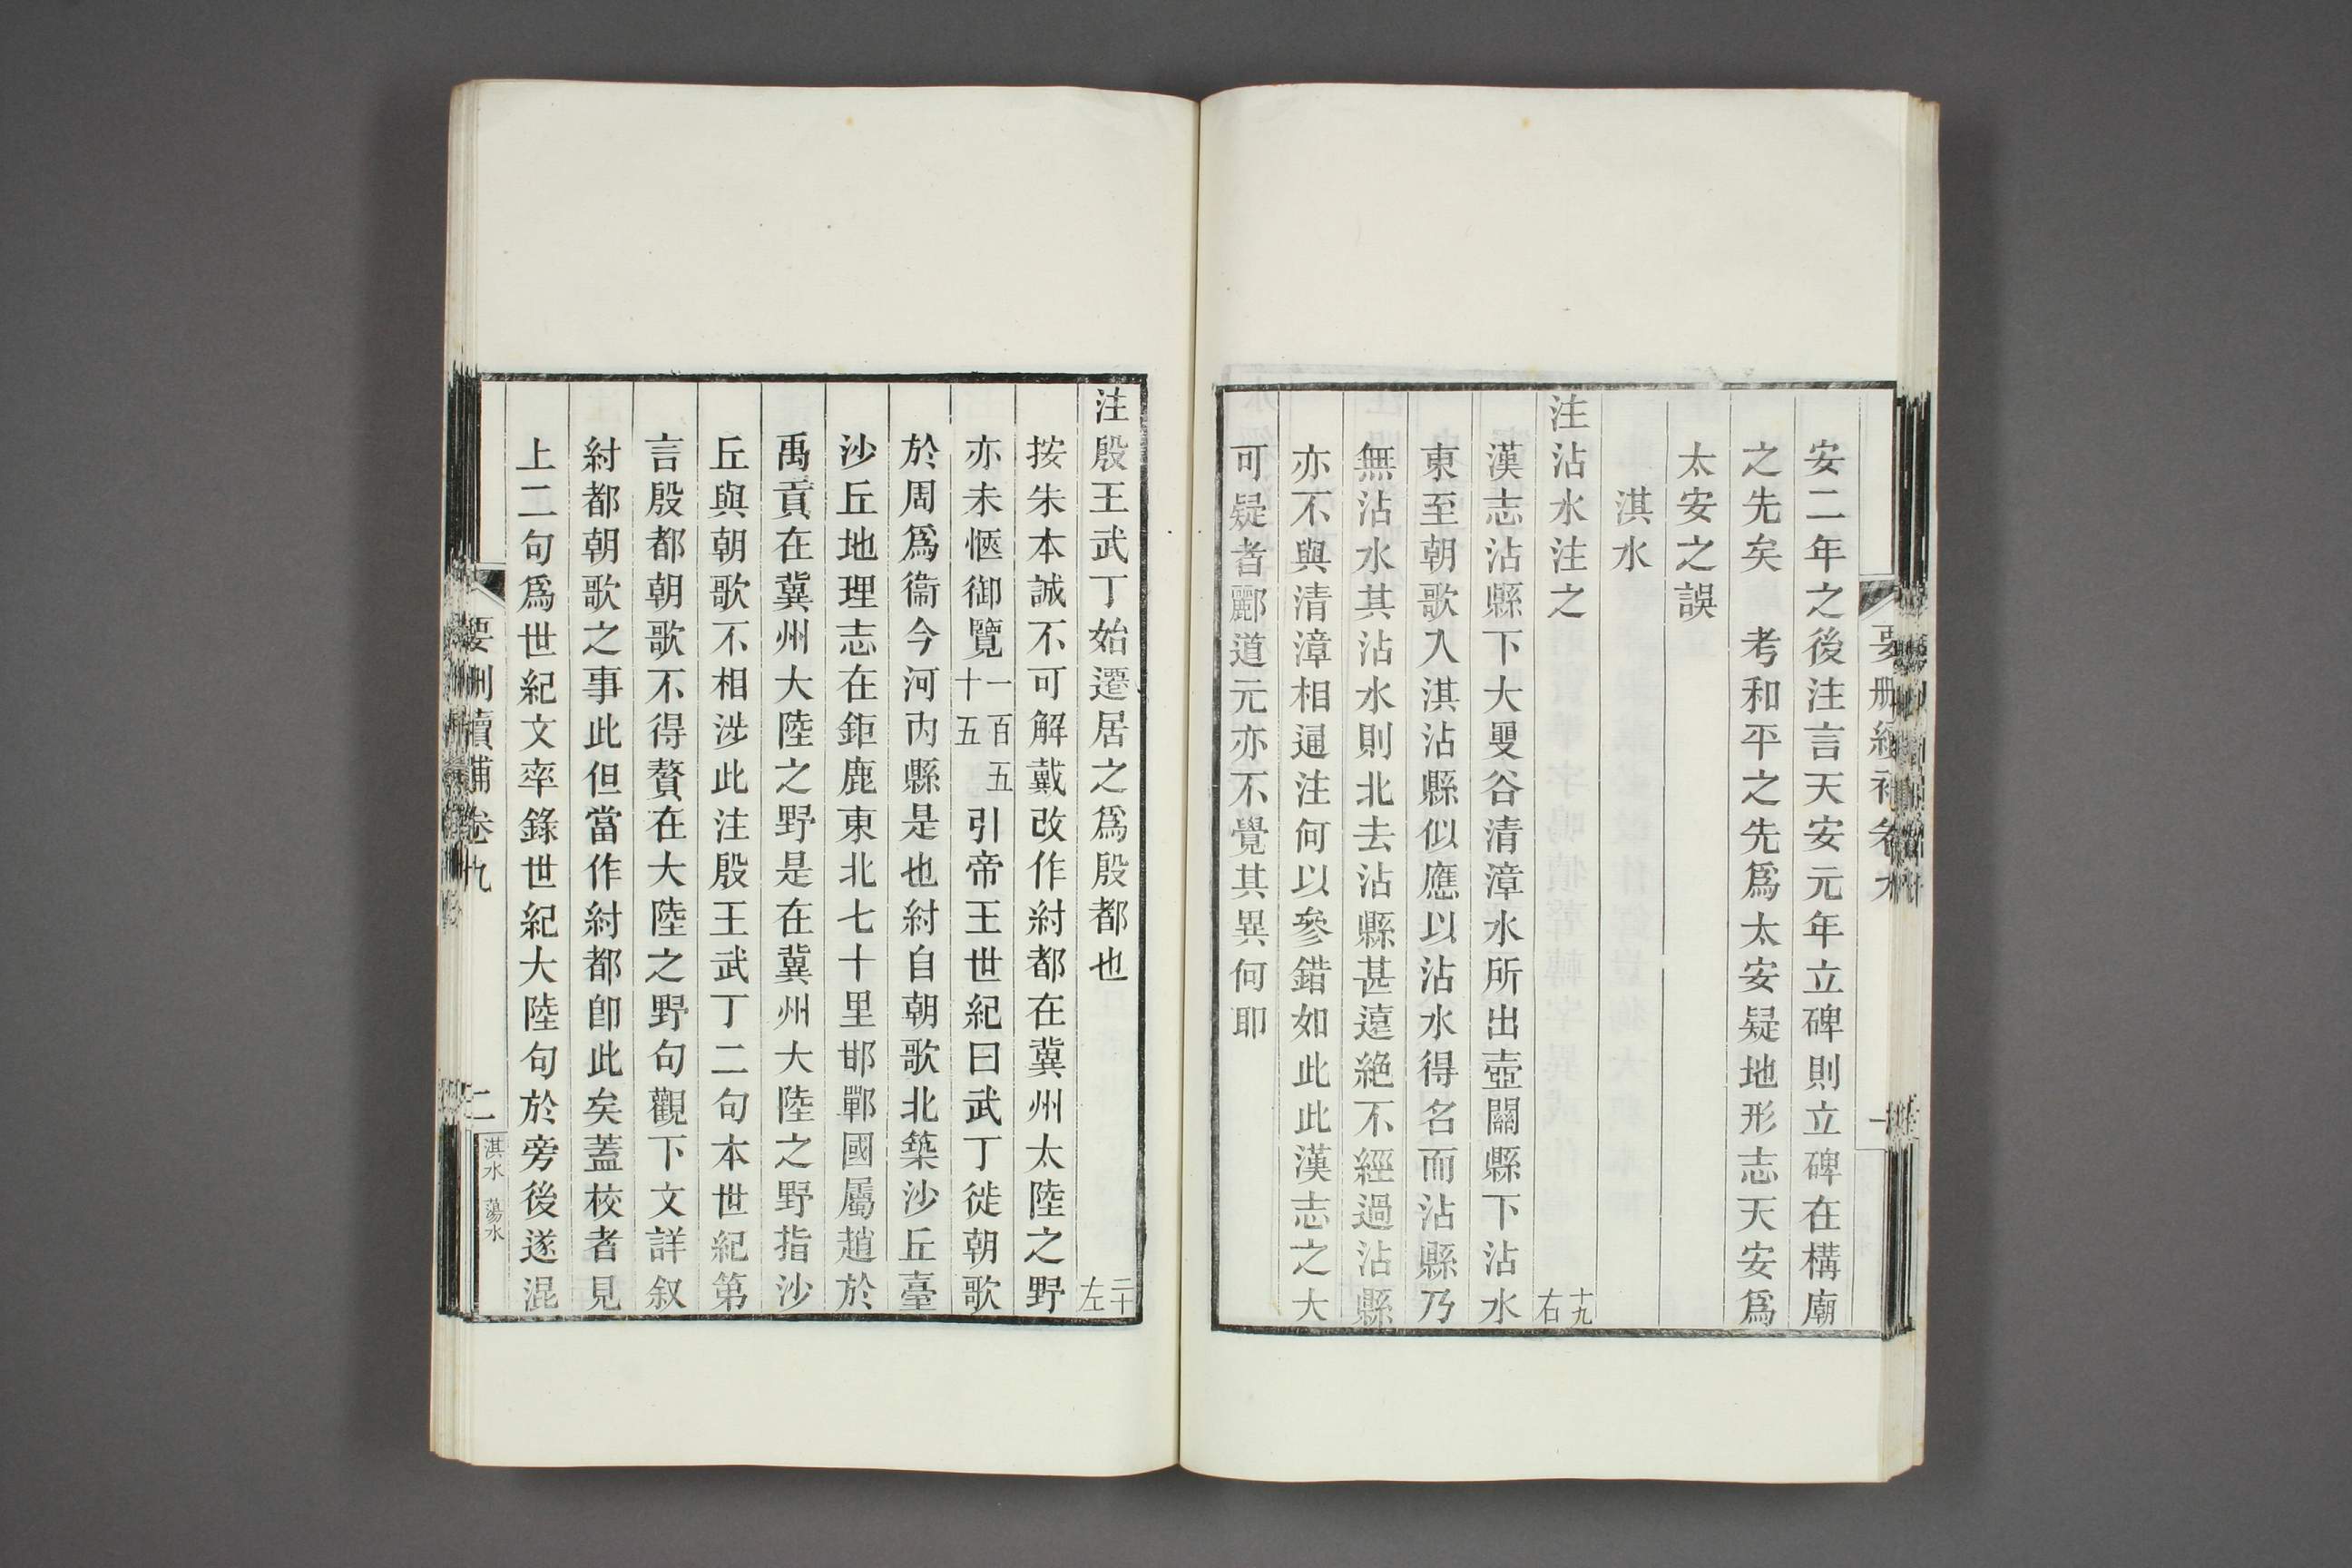 安二年之後注言天安元年立碑則立碑在構廟
之先矣　考和平之先爲太安疑地形志天安爲
太安之誤
淇水
注沾水注之　十九右
漢志沾縣下大㕠谷清漳水所出壺關縣下沾水
東至朝歌入淇沾縣似應以沾水得名而沾縣乃
無沾水其沾水則北去沾縣甚遠絶不經過沾縣
亦不與清漳相通注何以參錯如此此漢志之大
可疑者酈道元亦不覺其異何耶
注殷王武丁始遷居之爲殷都也　二十左
按朱本誠不可解戴改作紂都在冀州太陸之野
亦未愜御覽一百五十五引帝王世紀曰武丁徙朝歌
於周爲衞今河內縣是也紂自朝歌北築沙丘臺
沙丘地理志在鉅鹿東北七十里邯鄲國屬趙於
禹貢在冀州大陸之野是在冀州大陸之野指沙
丘與朝歌不相涉此注殷王武丁二句本世紀第
言殷都朝歌不得贅在大陸之野句觀下文詳叙
紂都朝歌之事此但當作紂都卽此矣蓋校者見
上二句爲世紀文率錄世紀大陸句於旁後遂混
要刪續補卷九
二
淇水　蕩水